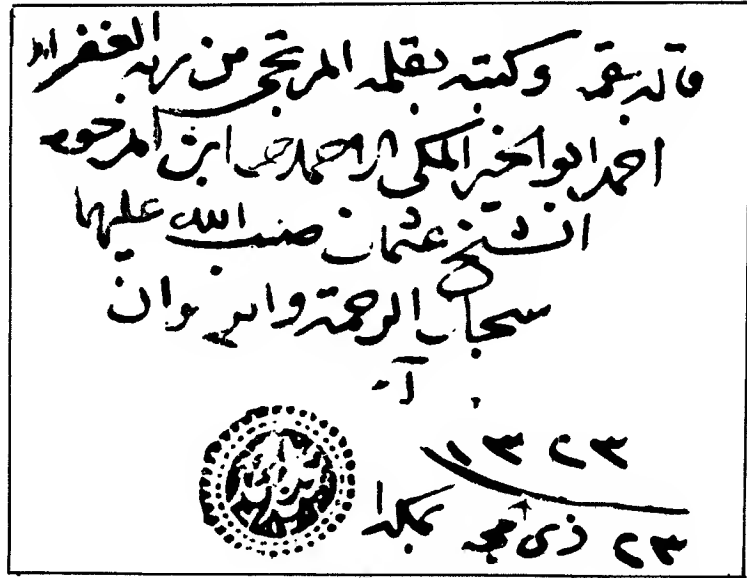 قاله بفمه وكتبه بقلمه المرتجى من ربه الغفران
احمد ابو الخير المكى ابن المرحوم
الشيخ عثمان صب الله عليهما
سجال الرحمة والرضوان
١٣٢٣
٢٣ ذى حجه